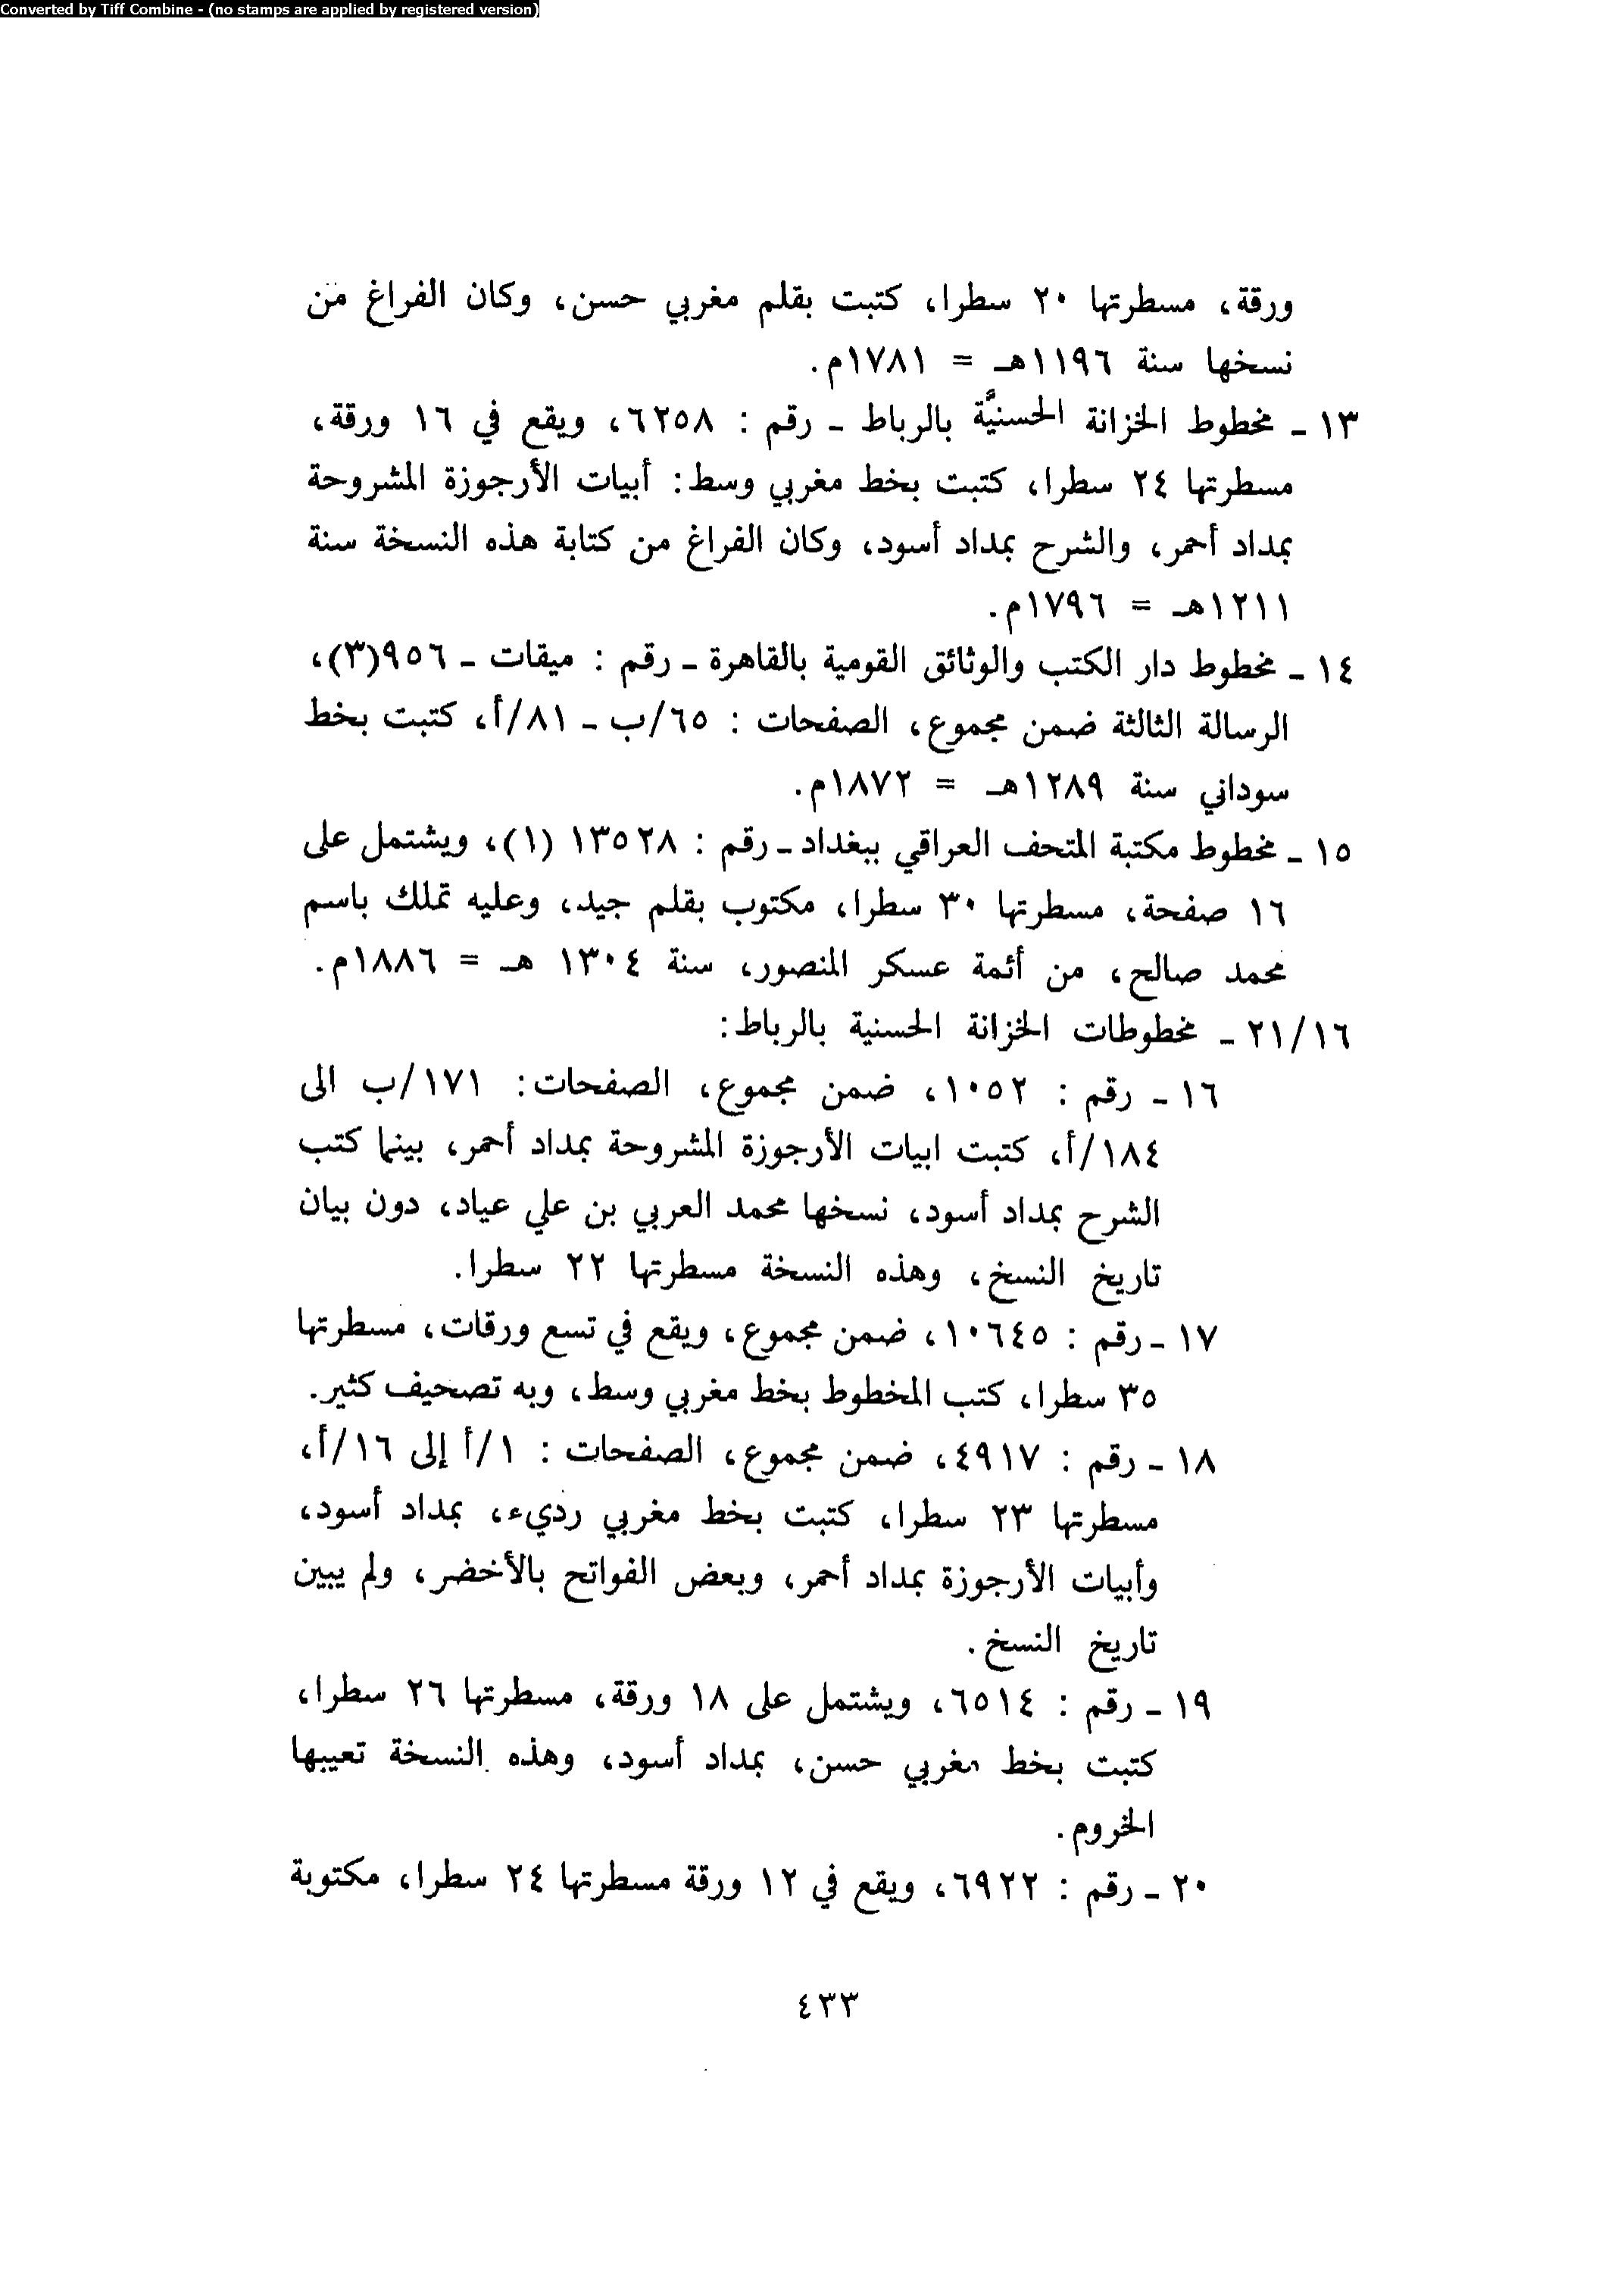 Converted by Tiff Combine - (no stamps are applied by registered version)
ورقة، مسطرتها ٢٠ سطرا، كتبت بقلم مغربي حسن، وكان الفراغ من
نسخها سنة ١١٩٦هـ = ١٧٨١م.
١٣ ـ مخطوط الخزانة الحسنيَّة بالرباط ـ رقم : ٦٢٥٨، ويقع في ١٦ ورقة،
مسطرتها ٢٤ سطرا، كتبت بخط مغربي وسط: أبيات الأرجوزة المشروحة
بمداد أحمر، والشرح بمداد أسود، وكان الفراغ من كتابة هذه النسخة سنة
١٢١١هـ = ١٧٩٦م.
١٤ ـ مخطوط دار الكتب والوثائق القومية بالقاهرة ـ رقم : ميقات ـ ٩٥٦(٣)،
الرسالة الثالثة ضمن مجموع، الصفحات : ٦٥/ب ـ ٨١/أ، كتبت بخط
سوداني سنة ١٢٨٩هـ = ١٨٧٢م.
١٥ ـ مخطوط مكتبة المتحف العراقي ببغداد ـ رقم : ١٣٥٢٨ (١)، ويشتمل على
١٦ صفحة، مسطرتها ٣٠ سطرا، مكتوب بقلم جيد، وعليه تملك باسم
محمد صالح، من أئمة عسكر المنصور، سنة ١٣٠٤ هـ = ١٨٨٦م.
٢١/١٦ ـ مخطوطات الخزانة الحسنية بالرباط:
١٦ ـ رقم : ١٠٥٢، ضمن مجموع، الصفحات: ١٧١/ب الى
١٨٤/أ، كتبت ابيات الأرجوزة المشروحة بمداد أحمر، بينما كتب
الشرح بمداد أسود، نسخها محمد العربي بن علي عياد، دون بيان
تاريخ النسخ، وهذه النسخة مسطرتها ٢٢ سطرا.
١٧ ـ رقم : ١٠٦٤٥، ضمن مجموع، ويقع في تسع ورقات، مسطرتها
٣٥ سطرا، كتب المخطوط بخط مغربي وسط، وبه تصحيف كثير.
١٨ ـ رقم : ٤٩١٧، ضمن مجموع، الصفحات : ١/أ إلى ١٦/أ،
مسطرتها ٢٣ سطرا، كتبت بخط مغربي رديء، بمداد أسود،
وأبيات الأرجوزة بمداد أحمر، وبعض الفواتح بالأخضر، ولم يبين
تاريخ النسخ.
١٩ ـ رقم : ٦٥١٤، ويشتمل على ١٨ ورقة، مسطرتها ٢٦ سطرا،
كتبت بخط مغربي حسن، بمداد أسود، وهذه النسخة تعيبها
الخروم.
٢٠ ـ رقم : ٦٩٢٢، ويقع في ١٢ ورقة مسطرتها ٢٤ سطرا، مكتوبة
٤٣٣